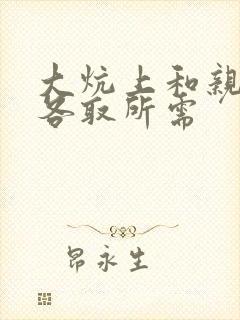 大炕上和親
各取所需
昂永生